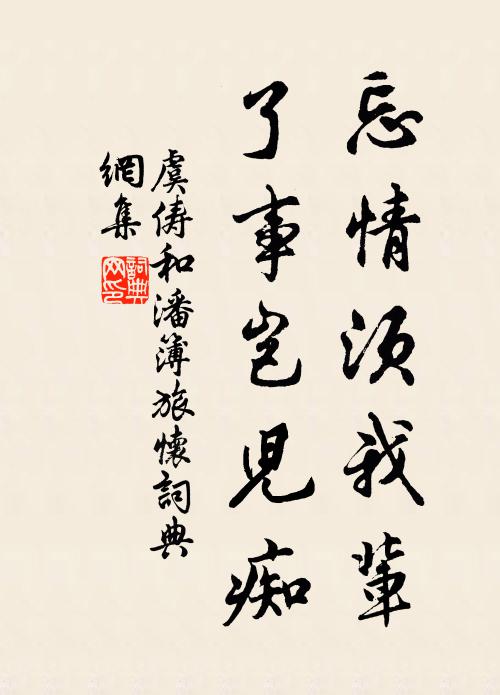 忘情須我輩
了事豈兒痴
虞儔和潘簿旅懷詞典
網集
詞典網印